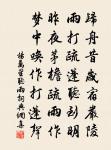 歸舟昔歲宿嚴陵
雨打疏篷聽到明
昨夜茅檐疏雨作
夢中喚作打篷聲
楊萬里聽雨詞典網